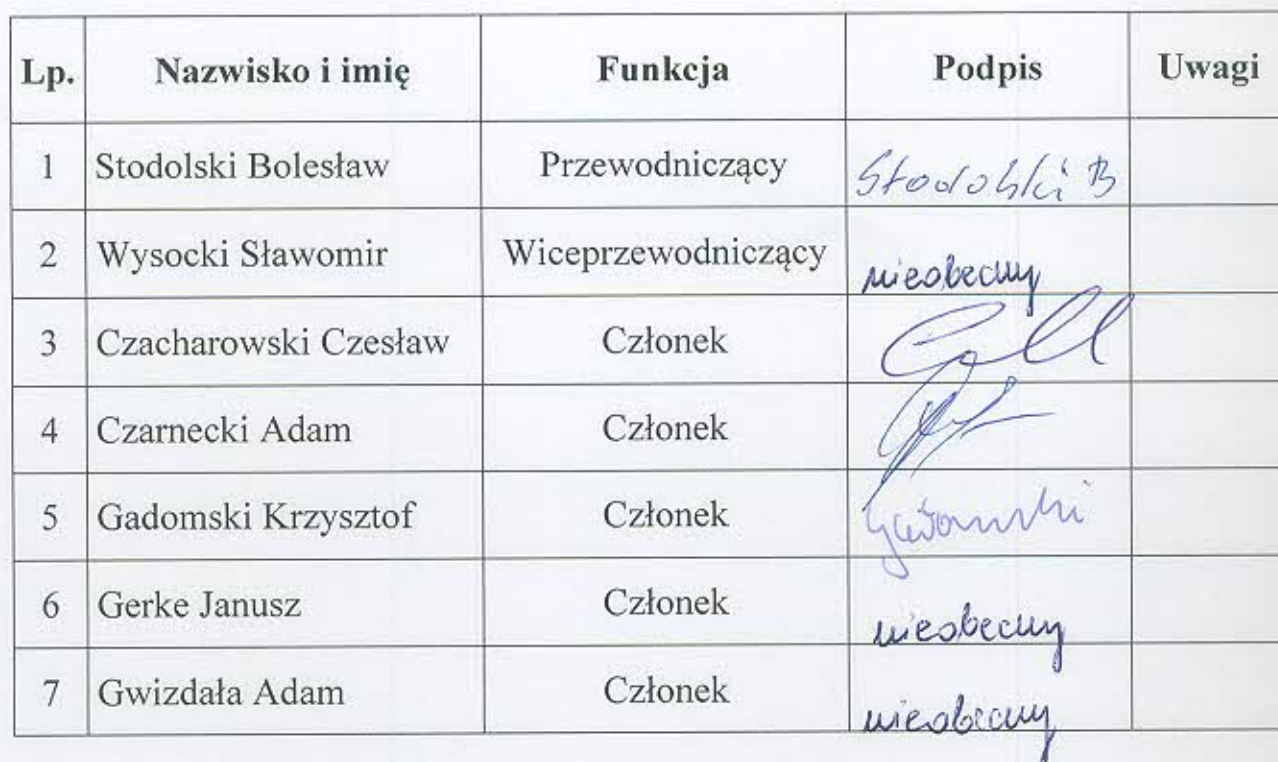 Lp. Nazwisko i imię Funkcja Podpis Uwagi
1 Stodolski Bolesław Przewodniczący Stodolski B
2 Wysocki Sławomir Wiceprzewodniczący nieobecny
3 Czacharowski Czesław Członek
4 Czarnecki Adam Członek
5 Gadomski Krzysztof Członek Gadomski
6 Gerke Janusz Członek nieobecny
7 Gwizdała Adam Członek nieobecny